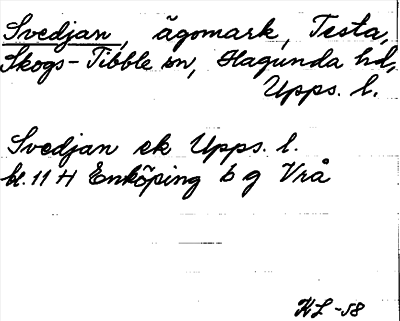 Svedjan, ägomark, Testa,
Skogs-Tibble sn, Hagunda hd,
Upps. l.
Svedjan ek Upps. l.
bl. 11 H Enköping b g Vrå
KL -58